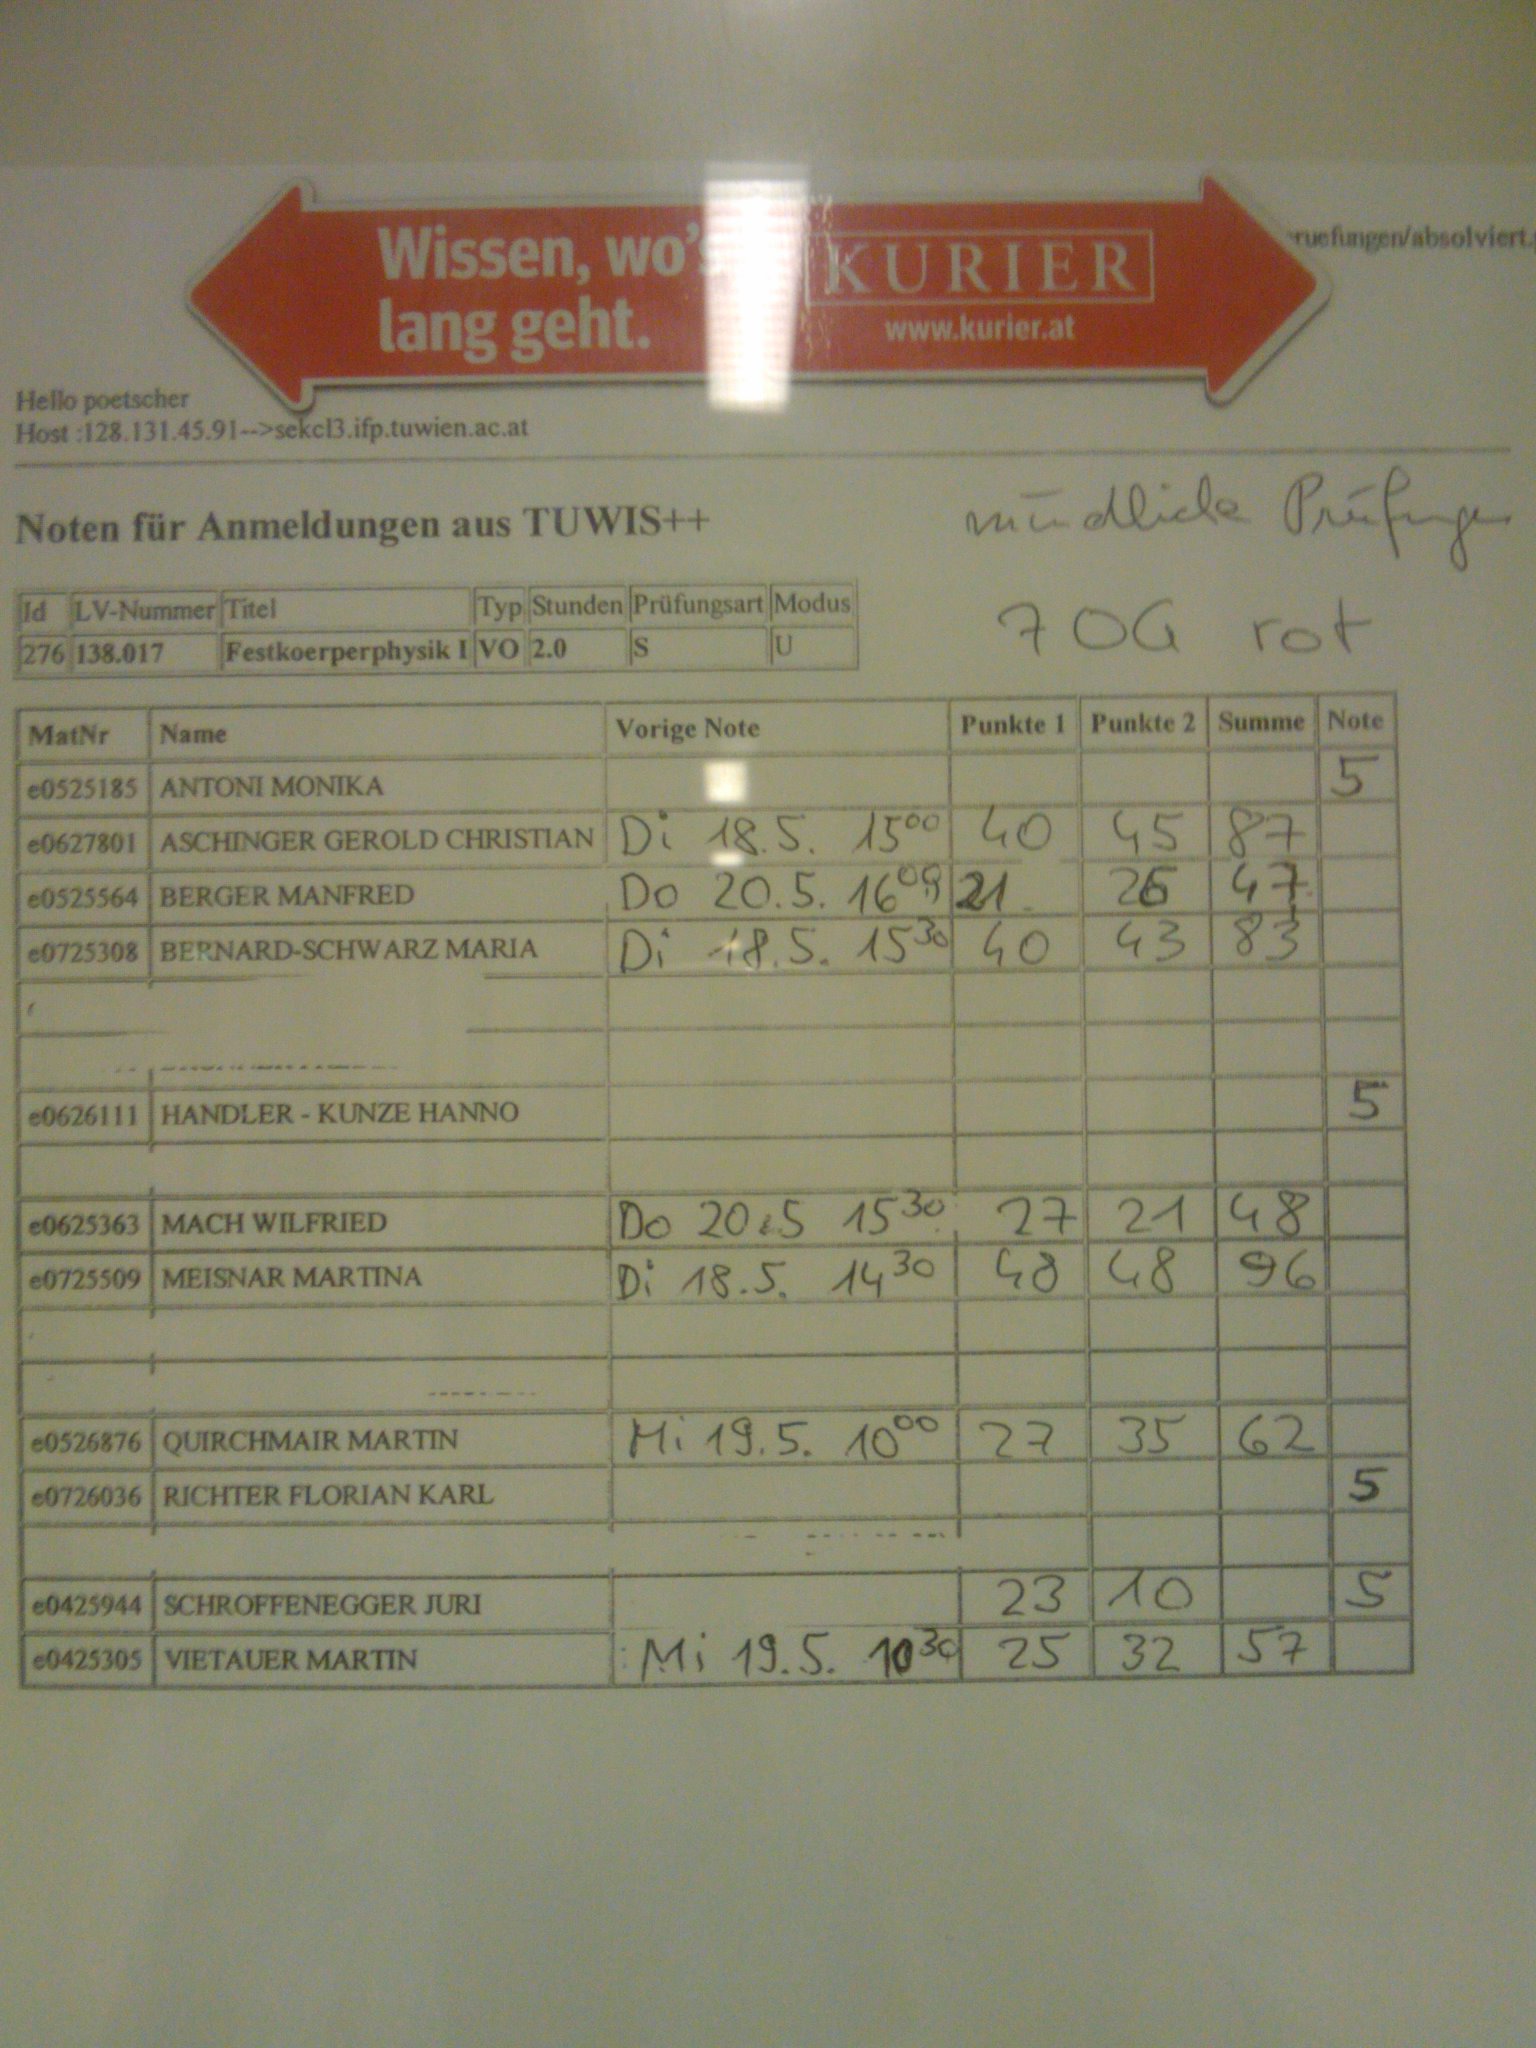 Wissen, wo's
lang geht.
KURIER
www.kurier.at
ruefungen/absolviert.
Hello poetscher
Host :128.131.45.91-->sekcl3.ifp.tuwien.ac.at
mündliche Prüfungen
Noten für Anmeldungen aus TUWIS++
7 OG rot
Id LV-Nummer Titel Typ Stunden Prüfungsart Modus
276 138.017 Festkoerperphysik I VO 2.0 S U
MatNr Name Vorige Note Punkte 1 Punkte 2 Summe Note
e0525185 ANTONI MONIKA 5
e0627801 ASCHINGER GEROLD CHRISTIAN Di 18.5. 15 00 40 45 87
e0525564 BERGER MANFRED Do 20.5. 16 00 21 26 47
e0725308 BERNARD-SCHWARZ MARIA Di 18.5. 15 30 40 43 83
e0626111 HANDLER - KUNZE HANNO 5
e0625363 MACH WILFRIED Do 20.5 15 30 27 21 48
e0725509 MEISNAR MARTINA Di 18.5. 14 30 48 48 96
e0526876 QUIRCHMAIR MARTIN Mi 19.5. 10 00 27 35 62
e0726036 RICHTER FLORIAN KARL 5
e0425944 SCHROFFENEGGER JURI 23 10 5
e0425305 VIETAUER MARTIN Mi 19.5. 10 30 25 32 57